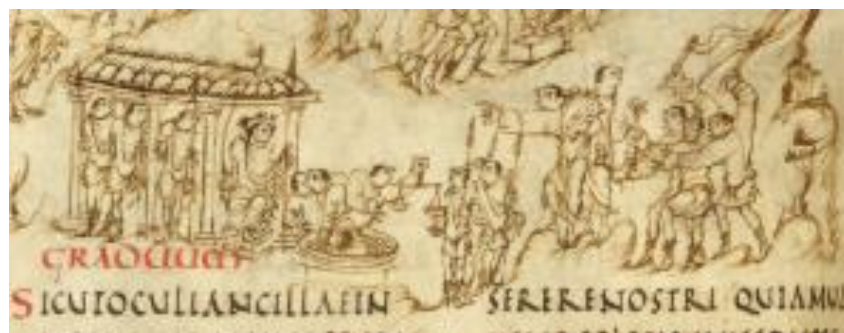 GRADUUM
SICUTOCULIANCILLAEIN SERERENOSTRI QUIAMU